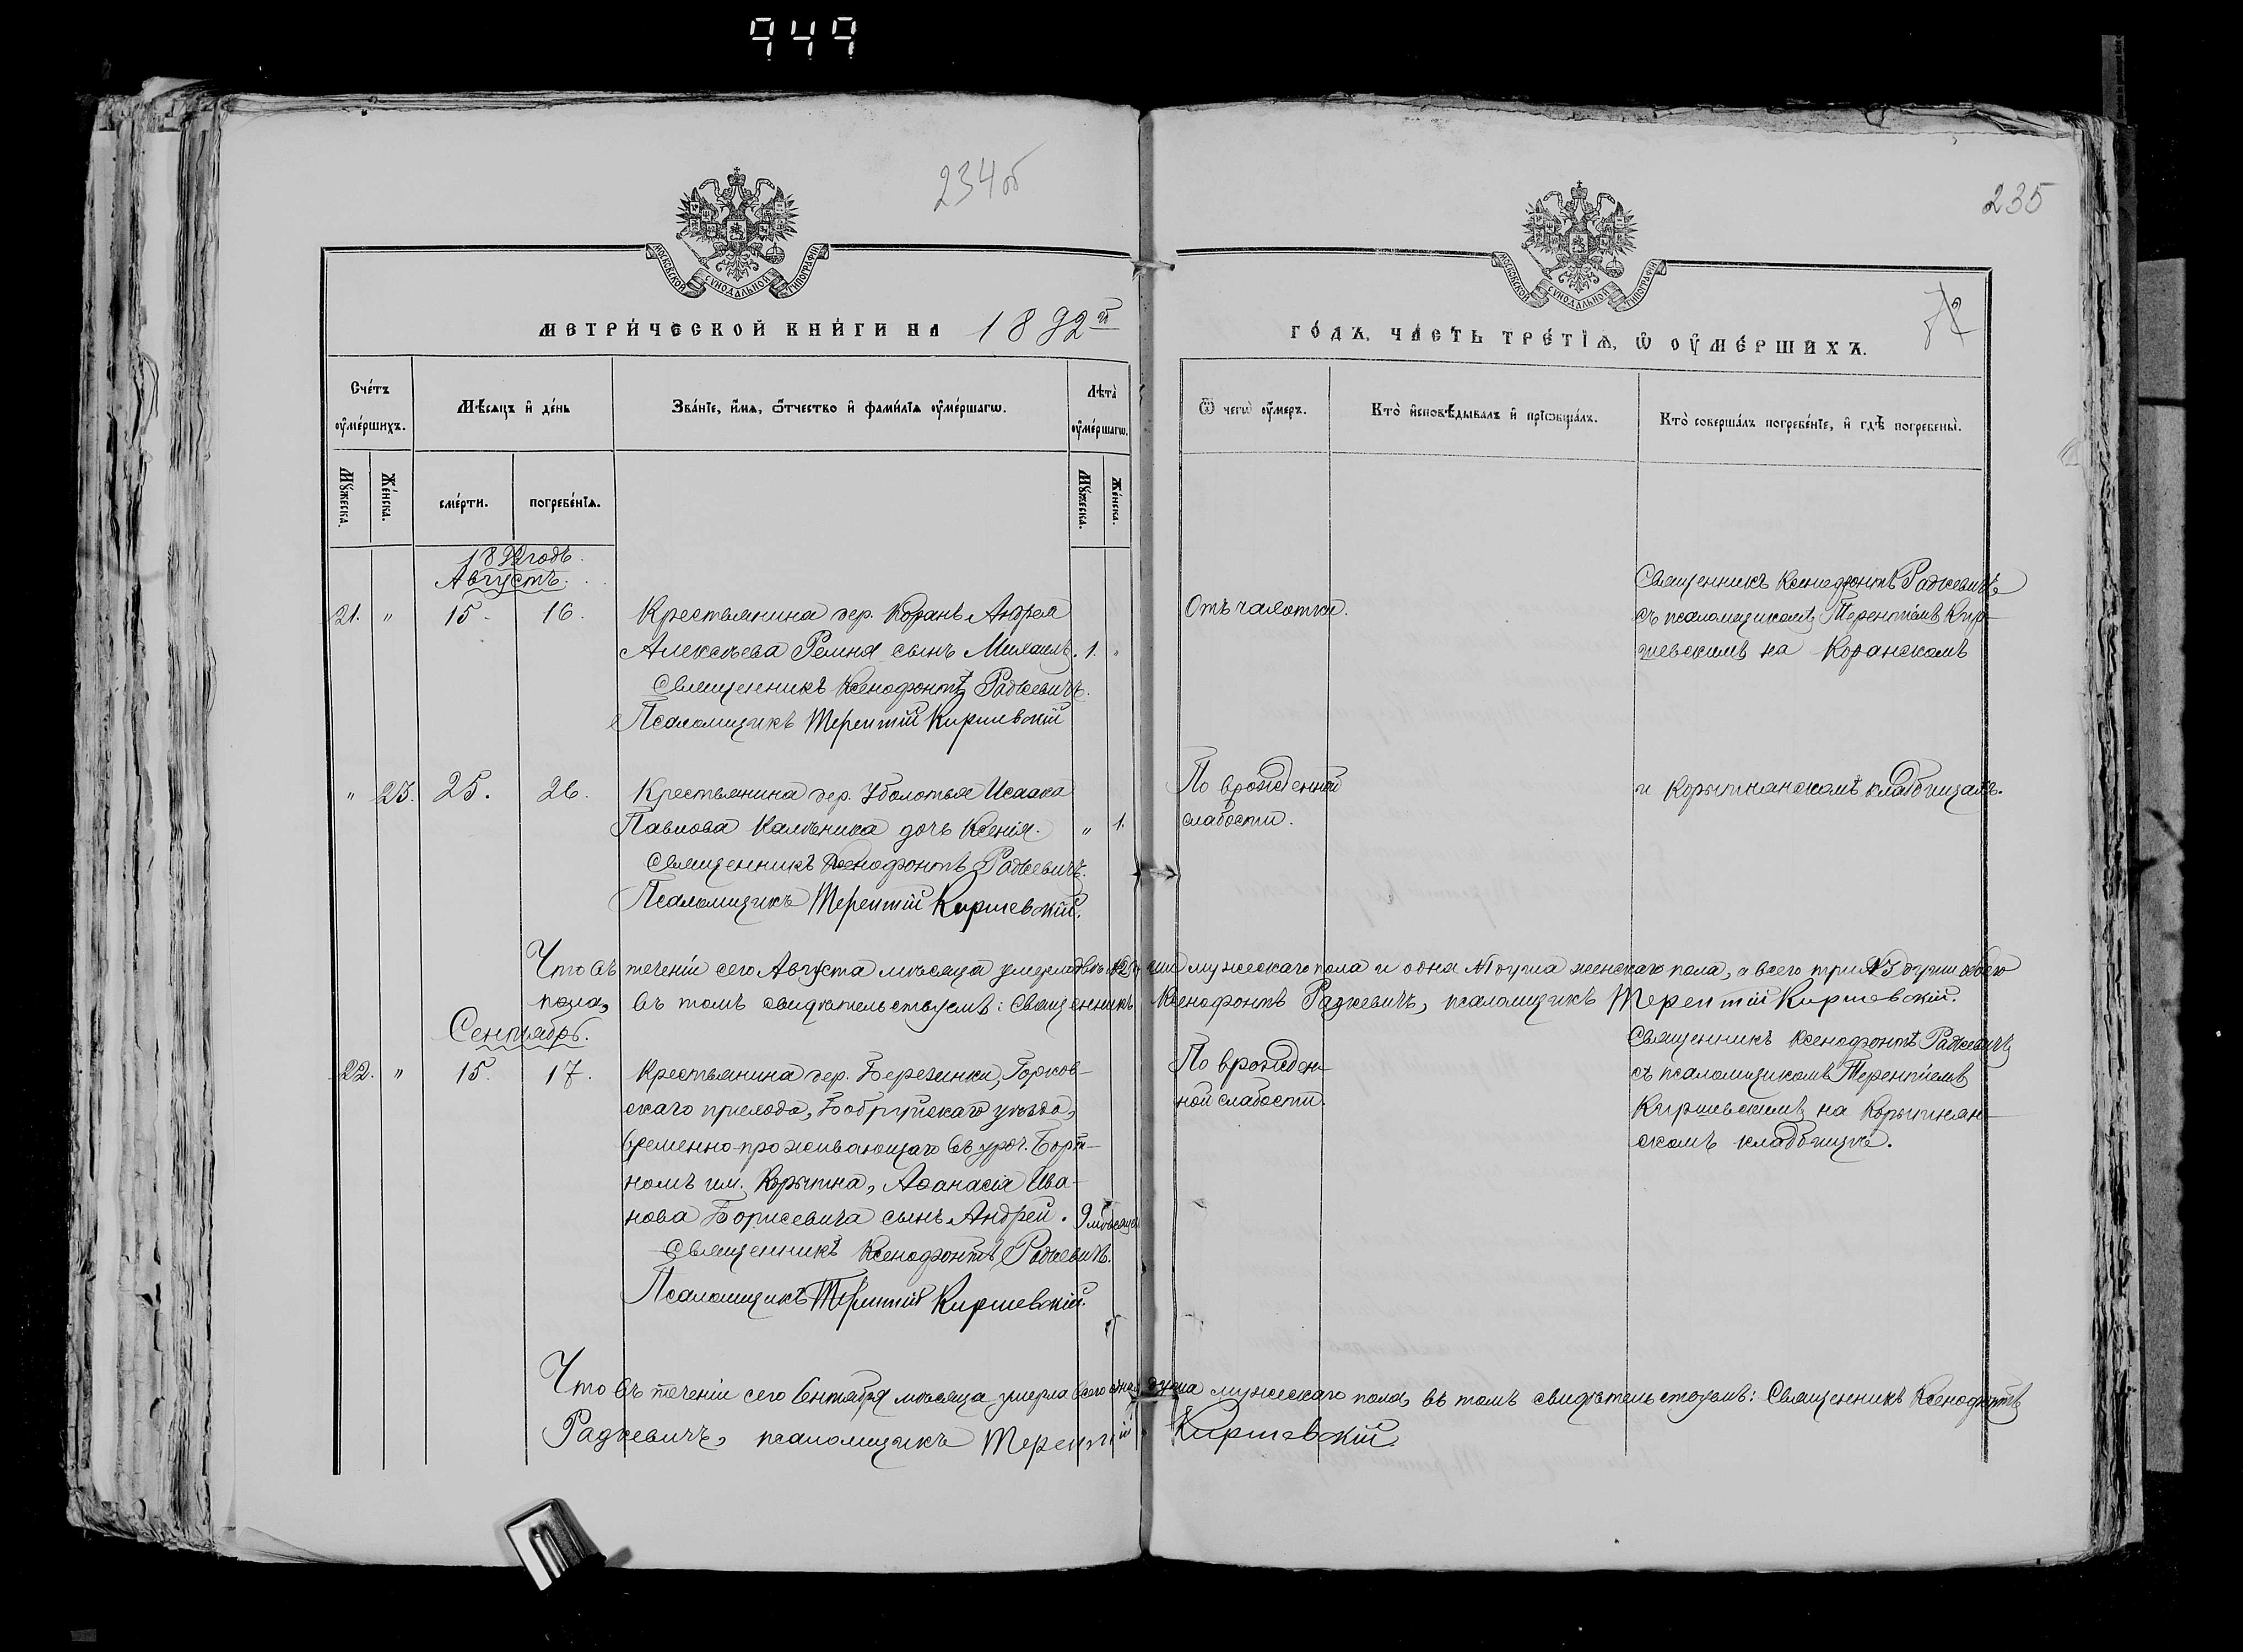 949
234об
235
МОСКОВСКОЙ СУНОДАЛЬНОЙ ТИПОГРАФІИ
МОСКОВСКОЙ СУНОДАЛЬНОЙ ТИПОГРАФІИ
МЕТРИ́ЧЕСКОЙ КНИ́ГИ НА 1892й
ГО́ДЪ, ЧА́СТЬ ТРЕ́ТІѦ, Ѡ ОУ҆МЕ́РШИХЪ.
Сче́тъ оу҆ме́ршихъ.
Мѣ́сѧцъ и҆ де́нь
Зва́нїе, и҆́мѧ, ѻ҆́тчество и҆ фами́лїѧ оу҆ме́ршагѡ.
Лѣта̀ оу҆ме́ршагѡ.
Ѿ чегѡ̀ оу҆́меръ.
Кто̀ и҆сповѣ́дывалъ и҆ прїѡбща́лъ.
Кто̀ соверша́лъ погребе́нїе, и҆ гдѣ̀ погребены̀.
Мꙋ́жеска.
Же́нска.
сме́рти.
погребе́нїѧ.
Мꙋ́жеска.
Же́нска.
1892 годъ.
Августъ.
21. " 15. 16. Крестьянина дер. Корань Андрея
Алексѣева сынъ Михаилъ. 1. "
Священникъ Ксенофонтъ Радкевичъ.
Псаломщикъ Терентій Киршевскій
Отъ чахотки.
Священникъ Ксенофонтъ Радкевичъ
съ псаломщикомъ Терентіемъ Кир-
шевскимъ на Коранскомъ
" 23. 25. 26. Крестьянина дер. Уболотья Исаака
Павлова Калѣника дочь Ксенія. " 1.
Священникъ Ксенофонтъ Радкевичъ.
Псаломщикъ Терентій Киршевскій.
По врожденной
слабости.
и Корытнянскомъ кладбищахъ.
Что въ теченіи сего Августа мѣсяца умерло двѣ №2 души мужескаго пола и одна №1 душа женскаго пола, а всего три №3 души обоего
пола, въ томъ свидѣтельствуемъ: Священникъ Ксенофонтъ Радкевичъ, псаломщикъ Терентій Киршевскій.
Сентябрь.
22. " 15. 17. Крестьянина дер. Березинки, Горков-
скаго прихода, Бобруйскаго уѣзда,
временно-проживающаго въ уроч. Борт-
номъ им. Корытна, Аѳанасія Ива-
нова Борисевича сынъ Андрей. 9 мѣсяцевъ
Священникъ Ксенофонтъ Радкевичъ.
Псаломщикъ Терентій Киршевскій.
По врожден-
ной слабости.
Священникъ Ксенофонтъ Радкевичъ
съ псаломщикомъ Терентіемъ
Киршевскимъ на Корытнян-
скомъ кладбищѣ.
Что въ теченіи сего Сентября мѣсяца умерла всего одна душа мужескаго пола, въ томъ свидѣтельствуемъ: Священникъ Ксенофонтъ
Радкевичъ, псаломщикъ Терентій Киршевскій.